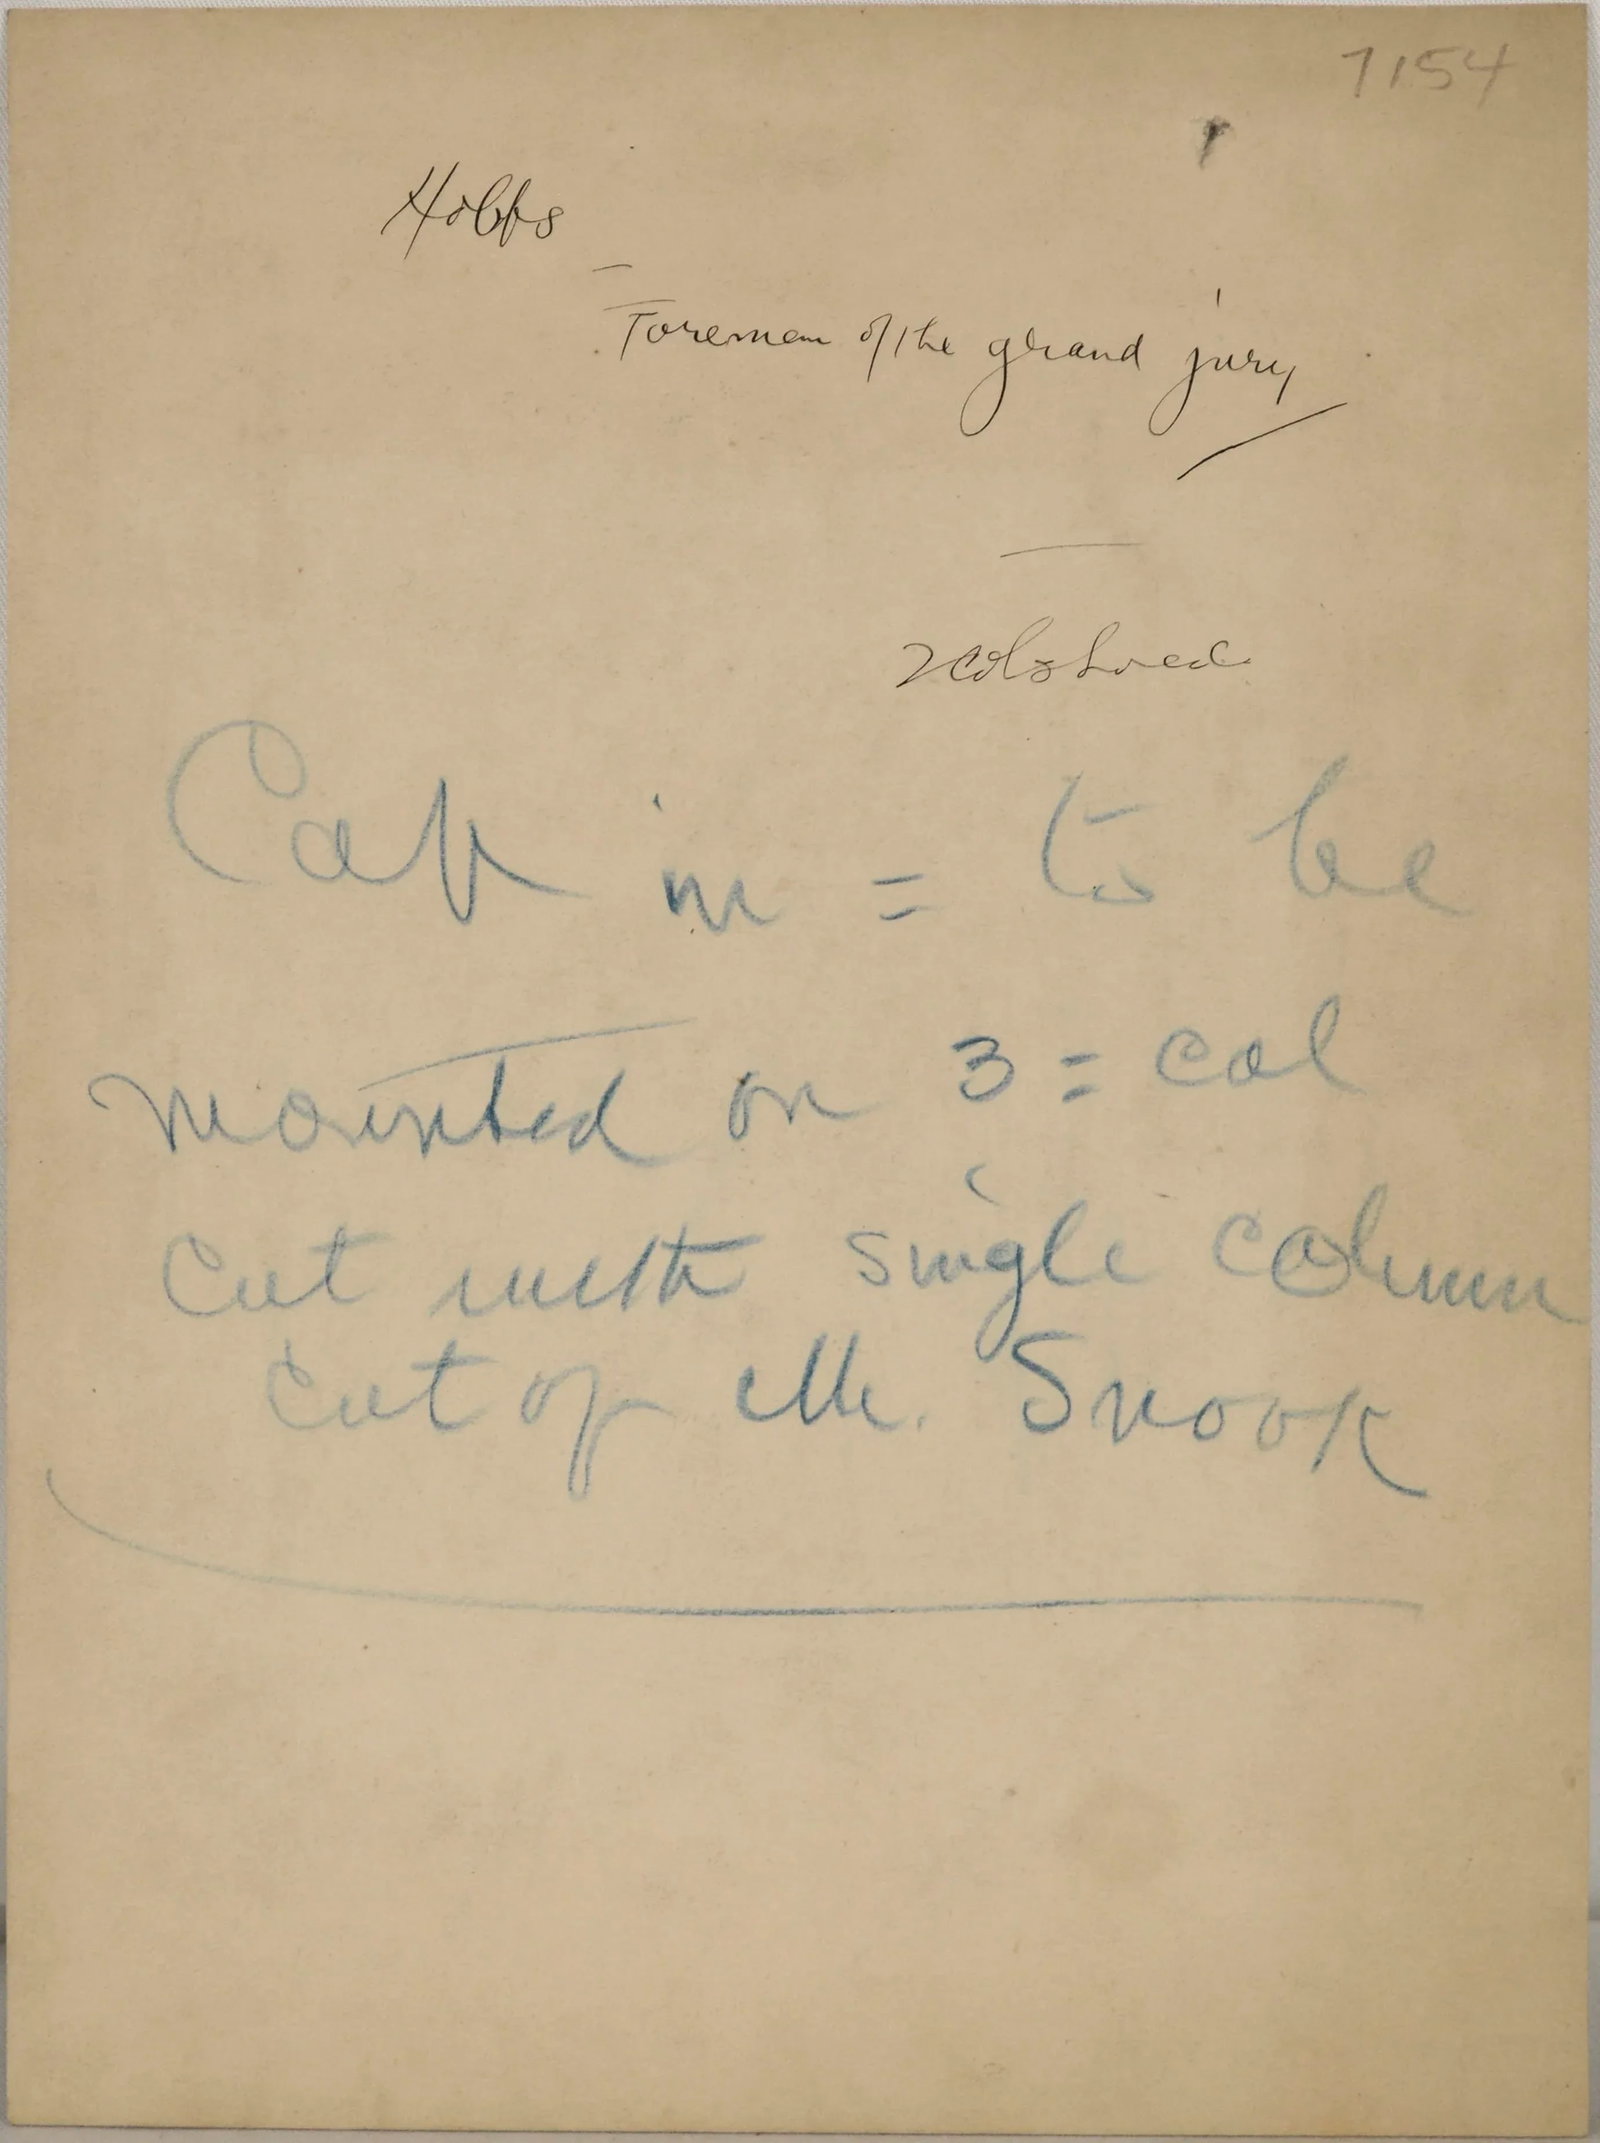 7154
Hobbs
Foreman of the grand jury
in = to be
mounted on 3 = col
cut with single column
cut of Mr. Snook